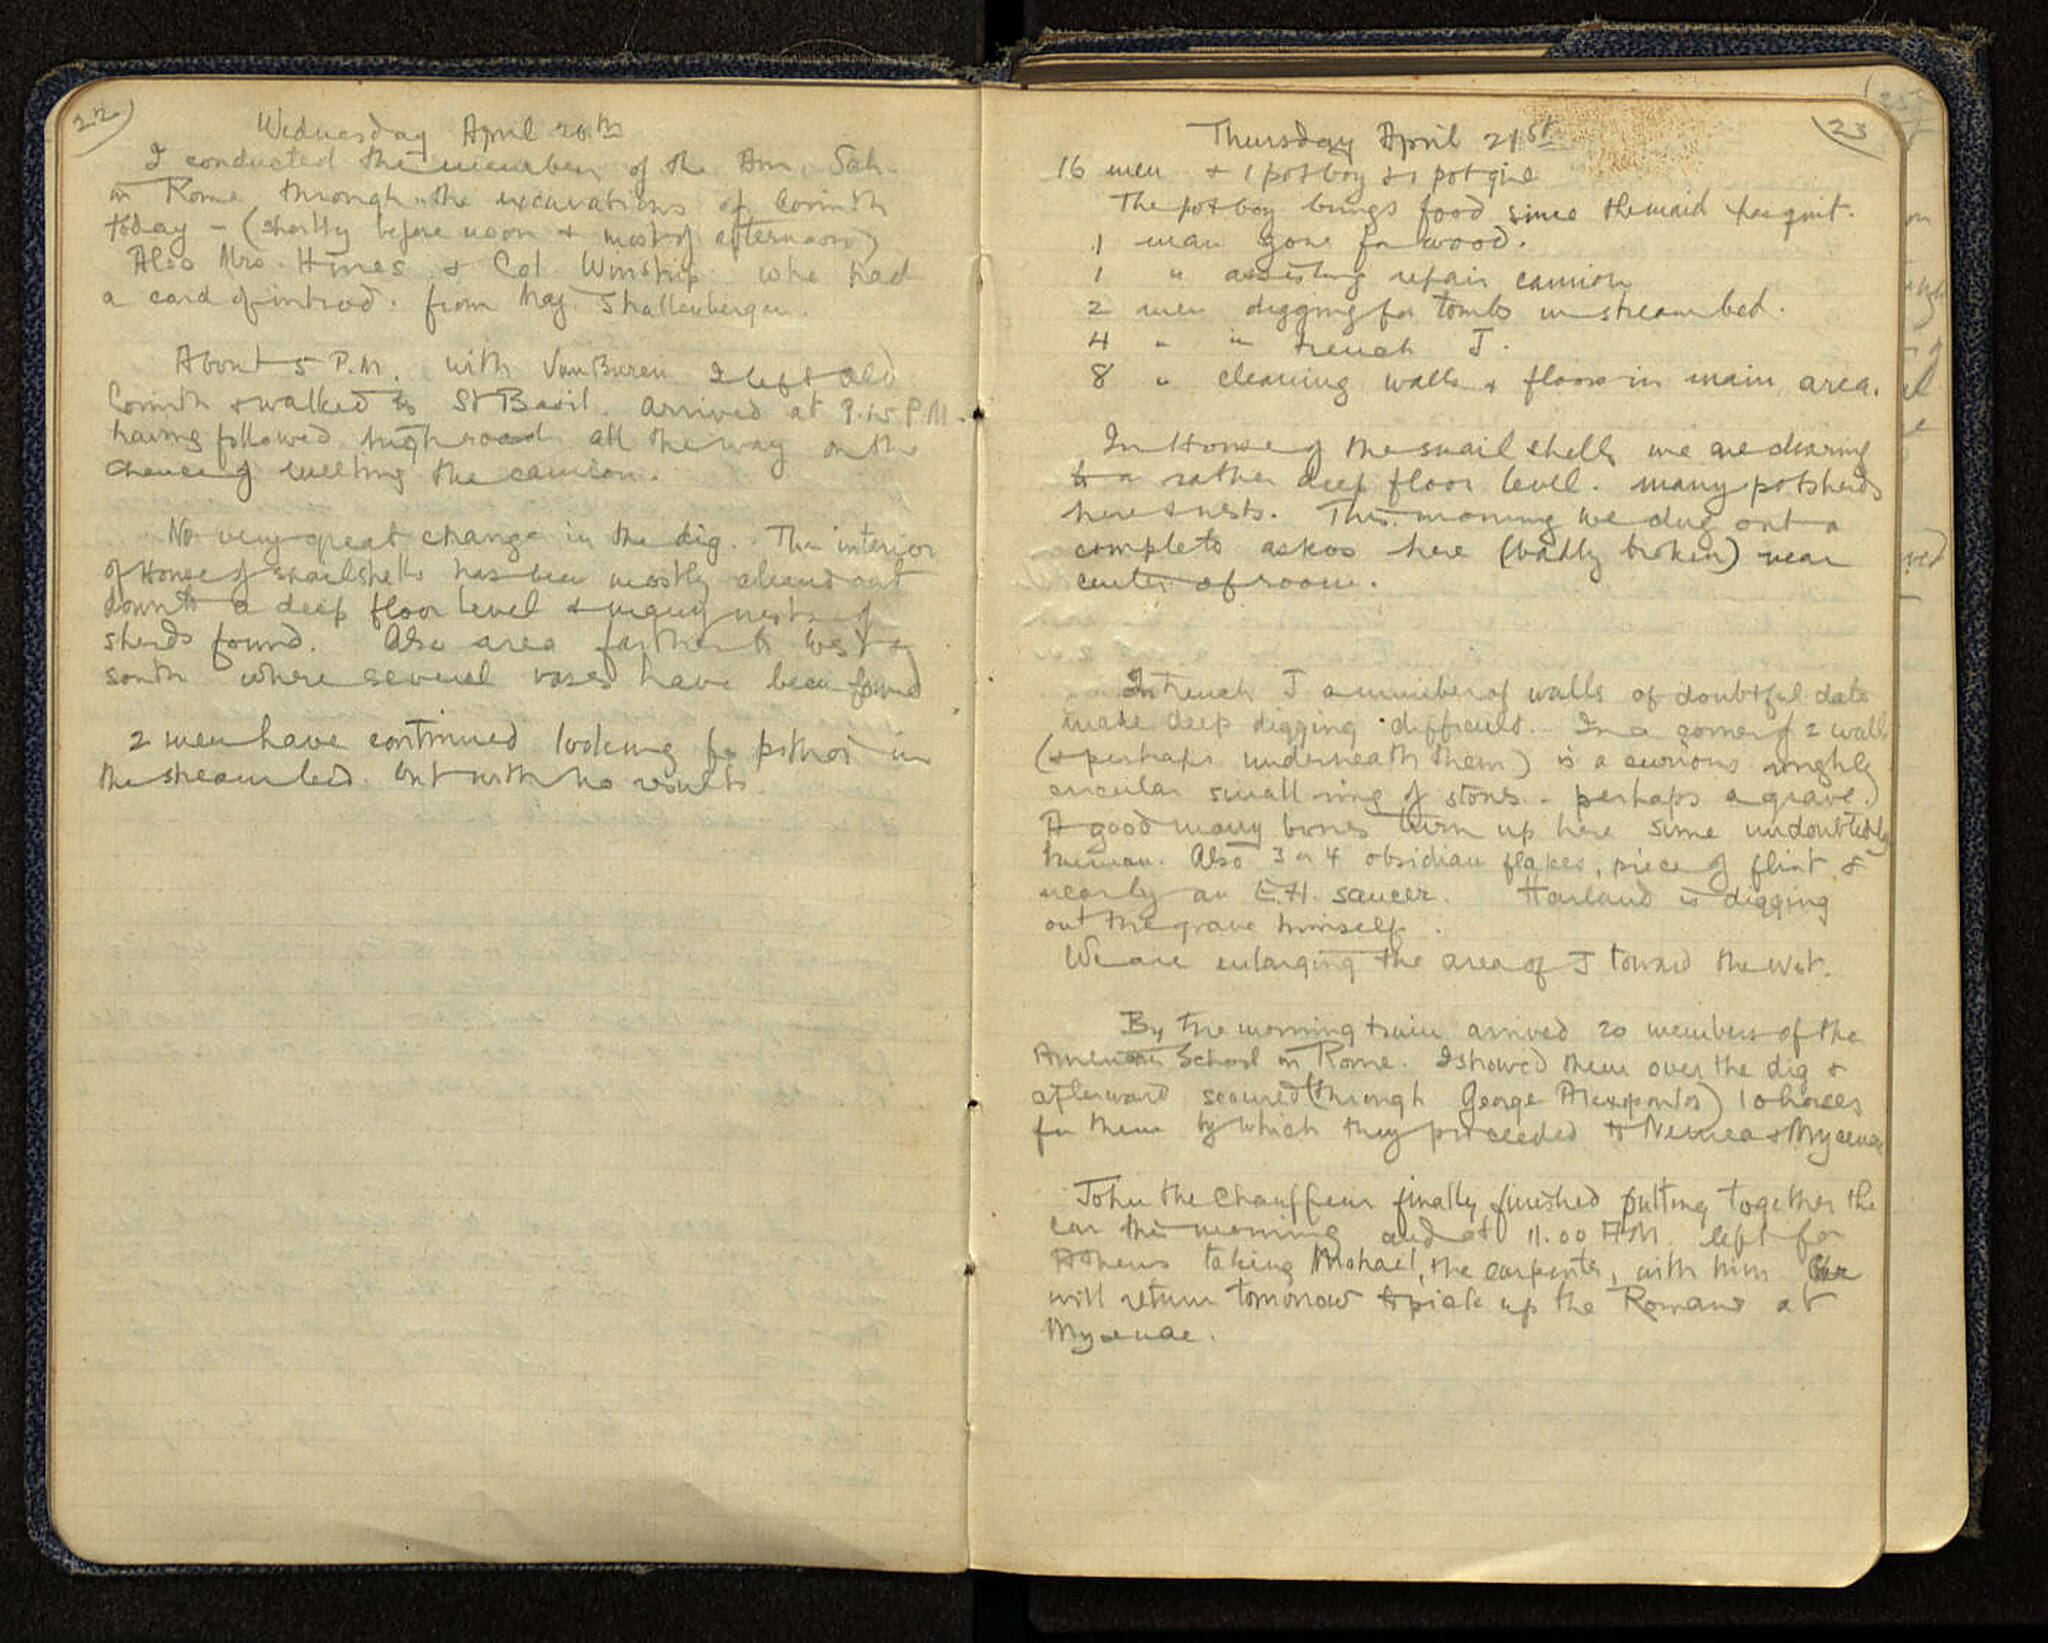 22
Wednesday April 20th
I conducted the members of the Am. Sch.
in Rome through the excavations of Corinth
today - (shortly before noon & most of afternoon)
Also Mrs. Hines & Col. Winship who had
a card of introd. from Maj. Shallenberger.
About 5 P.M. with Van Buren I left Old
Corinth & walked to St Basil. arrived at 9.15 P.M.
having followed high road all the way on the
chance of meeting the camion.
No very great change in the dig. The interior
of House of snailshells has been mostly cleaned out
down to a deep floor level & many nests of
sherds found. Also area farther to west &
south where several vases have been found
2 men have continued looking for pithoi in
the stream bed but with no results.
23
Thursday April 21st
16 men & 1 potboy & 1 potgirl
The potboy brings food since the maid has quit.
1 man gone for wood.
1 " assisting repair camion
2 men digging for tombs in streambed.
4 " in trench J.
8 " cleaning walls & floors in main area.
In House of the snail shells we are clearing
to a rather deep floor level. many potsherds
here & nests. This morning we dug out a
complete askos here (badly broken) near
center of room.
In trench J a number of walls of doubtful date
make deep digging difficult. In a corner of 2 walls
(& perhaps underneath them) is a curious roughly
circular small ring of stones - perhaps a grave.
A good many bones turn up here some undoubtedly
human. Also 3 or 4 obsidian flakes, piece of flint &
nearly an E.H. saucer. Harland is digging
out the grave himself.
We are enlarging the area of J toward the West.
By the morning train arrived 20 members of the
American School in Rome. I showed them over the dig &
afterward secured (through George Alexopoulos) 10 horses
for them by which they proceeded to Nemea & Mycenae
John the Chauffeur finally finished putting together the
car this morning and at 11.00 A.M. left for
Athens taking Michael, the carpenter, with him. He
will return tomorrow to pick up the Romans at
Mycenae.